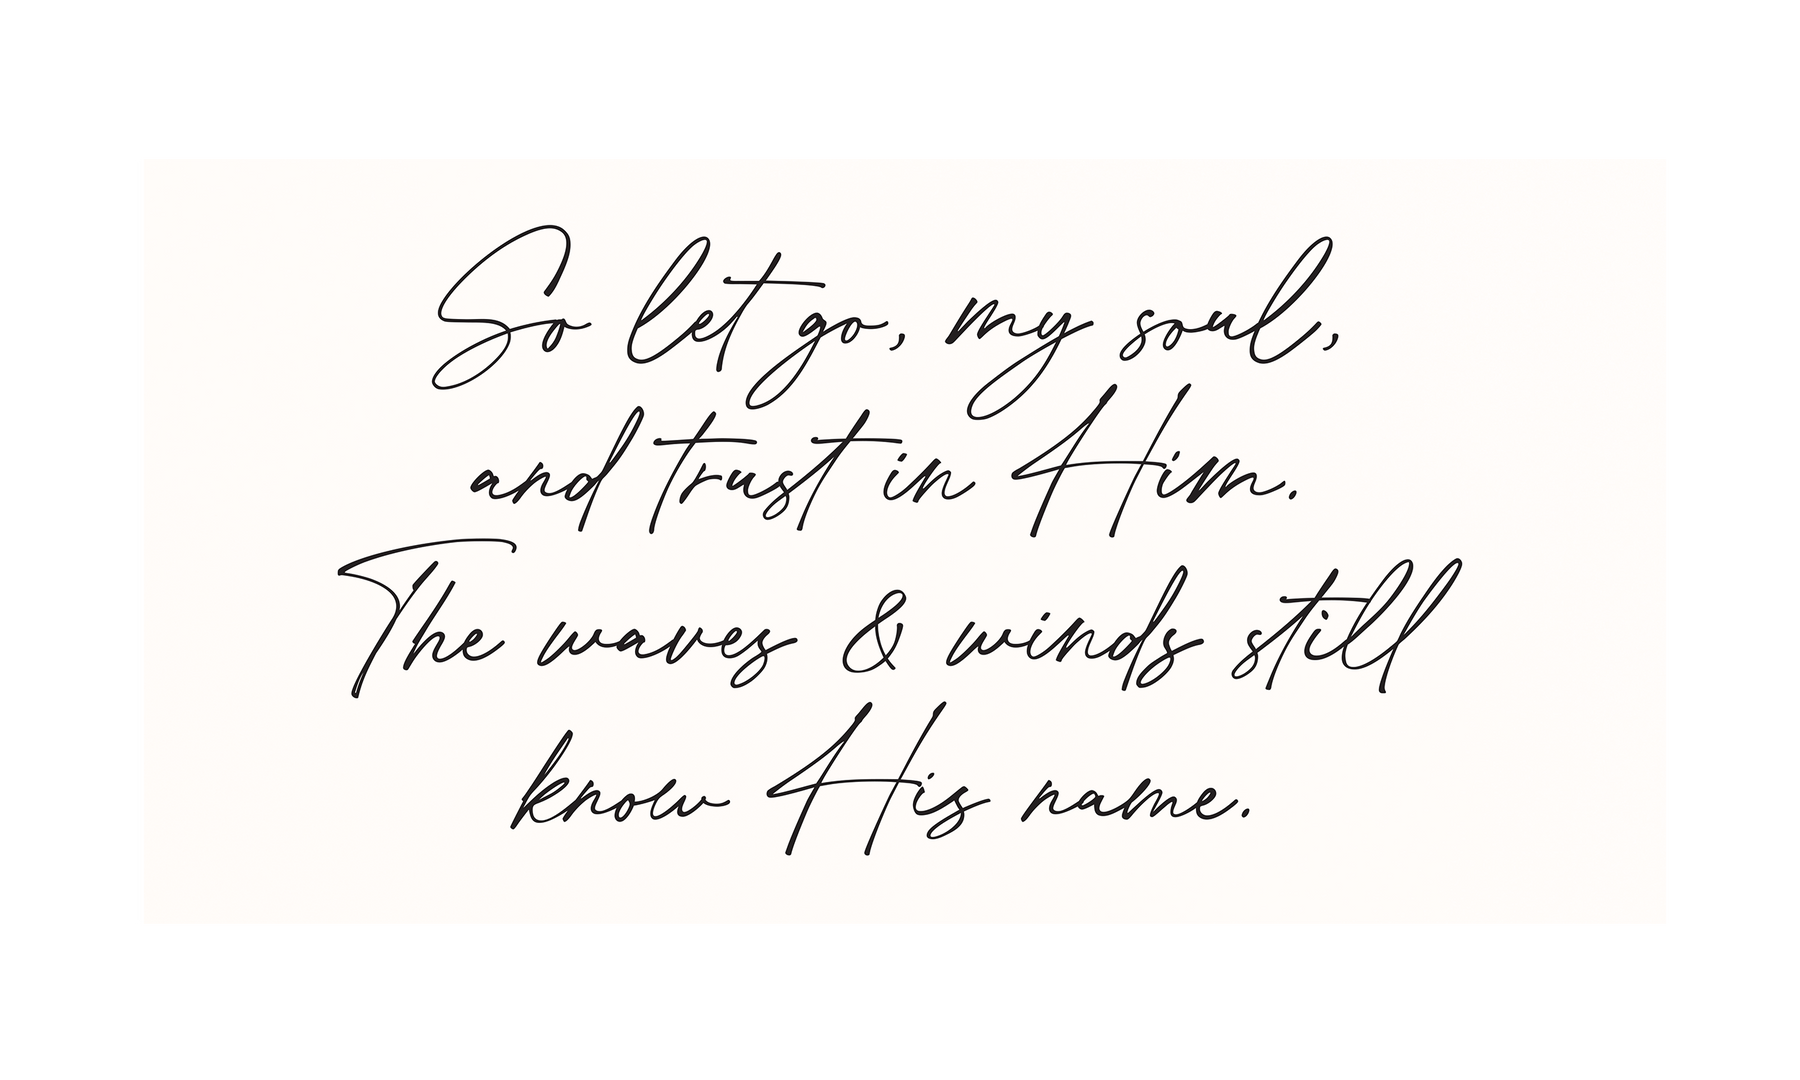 So let go, my soul,
and trust in Him.
The waves & winds still
know His name.